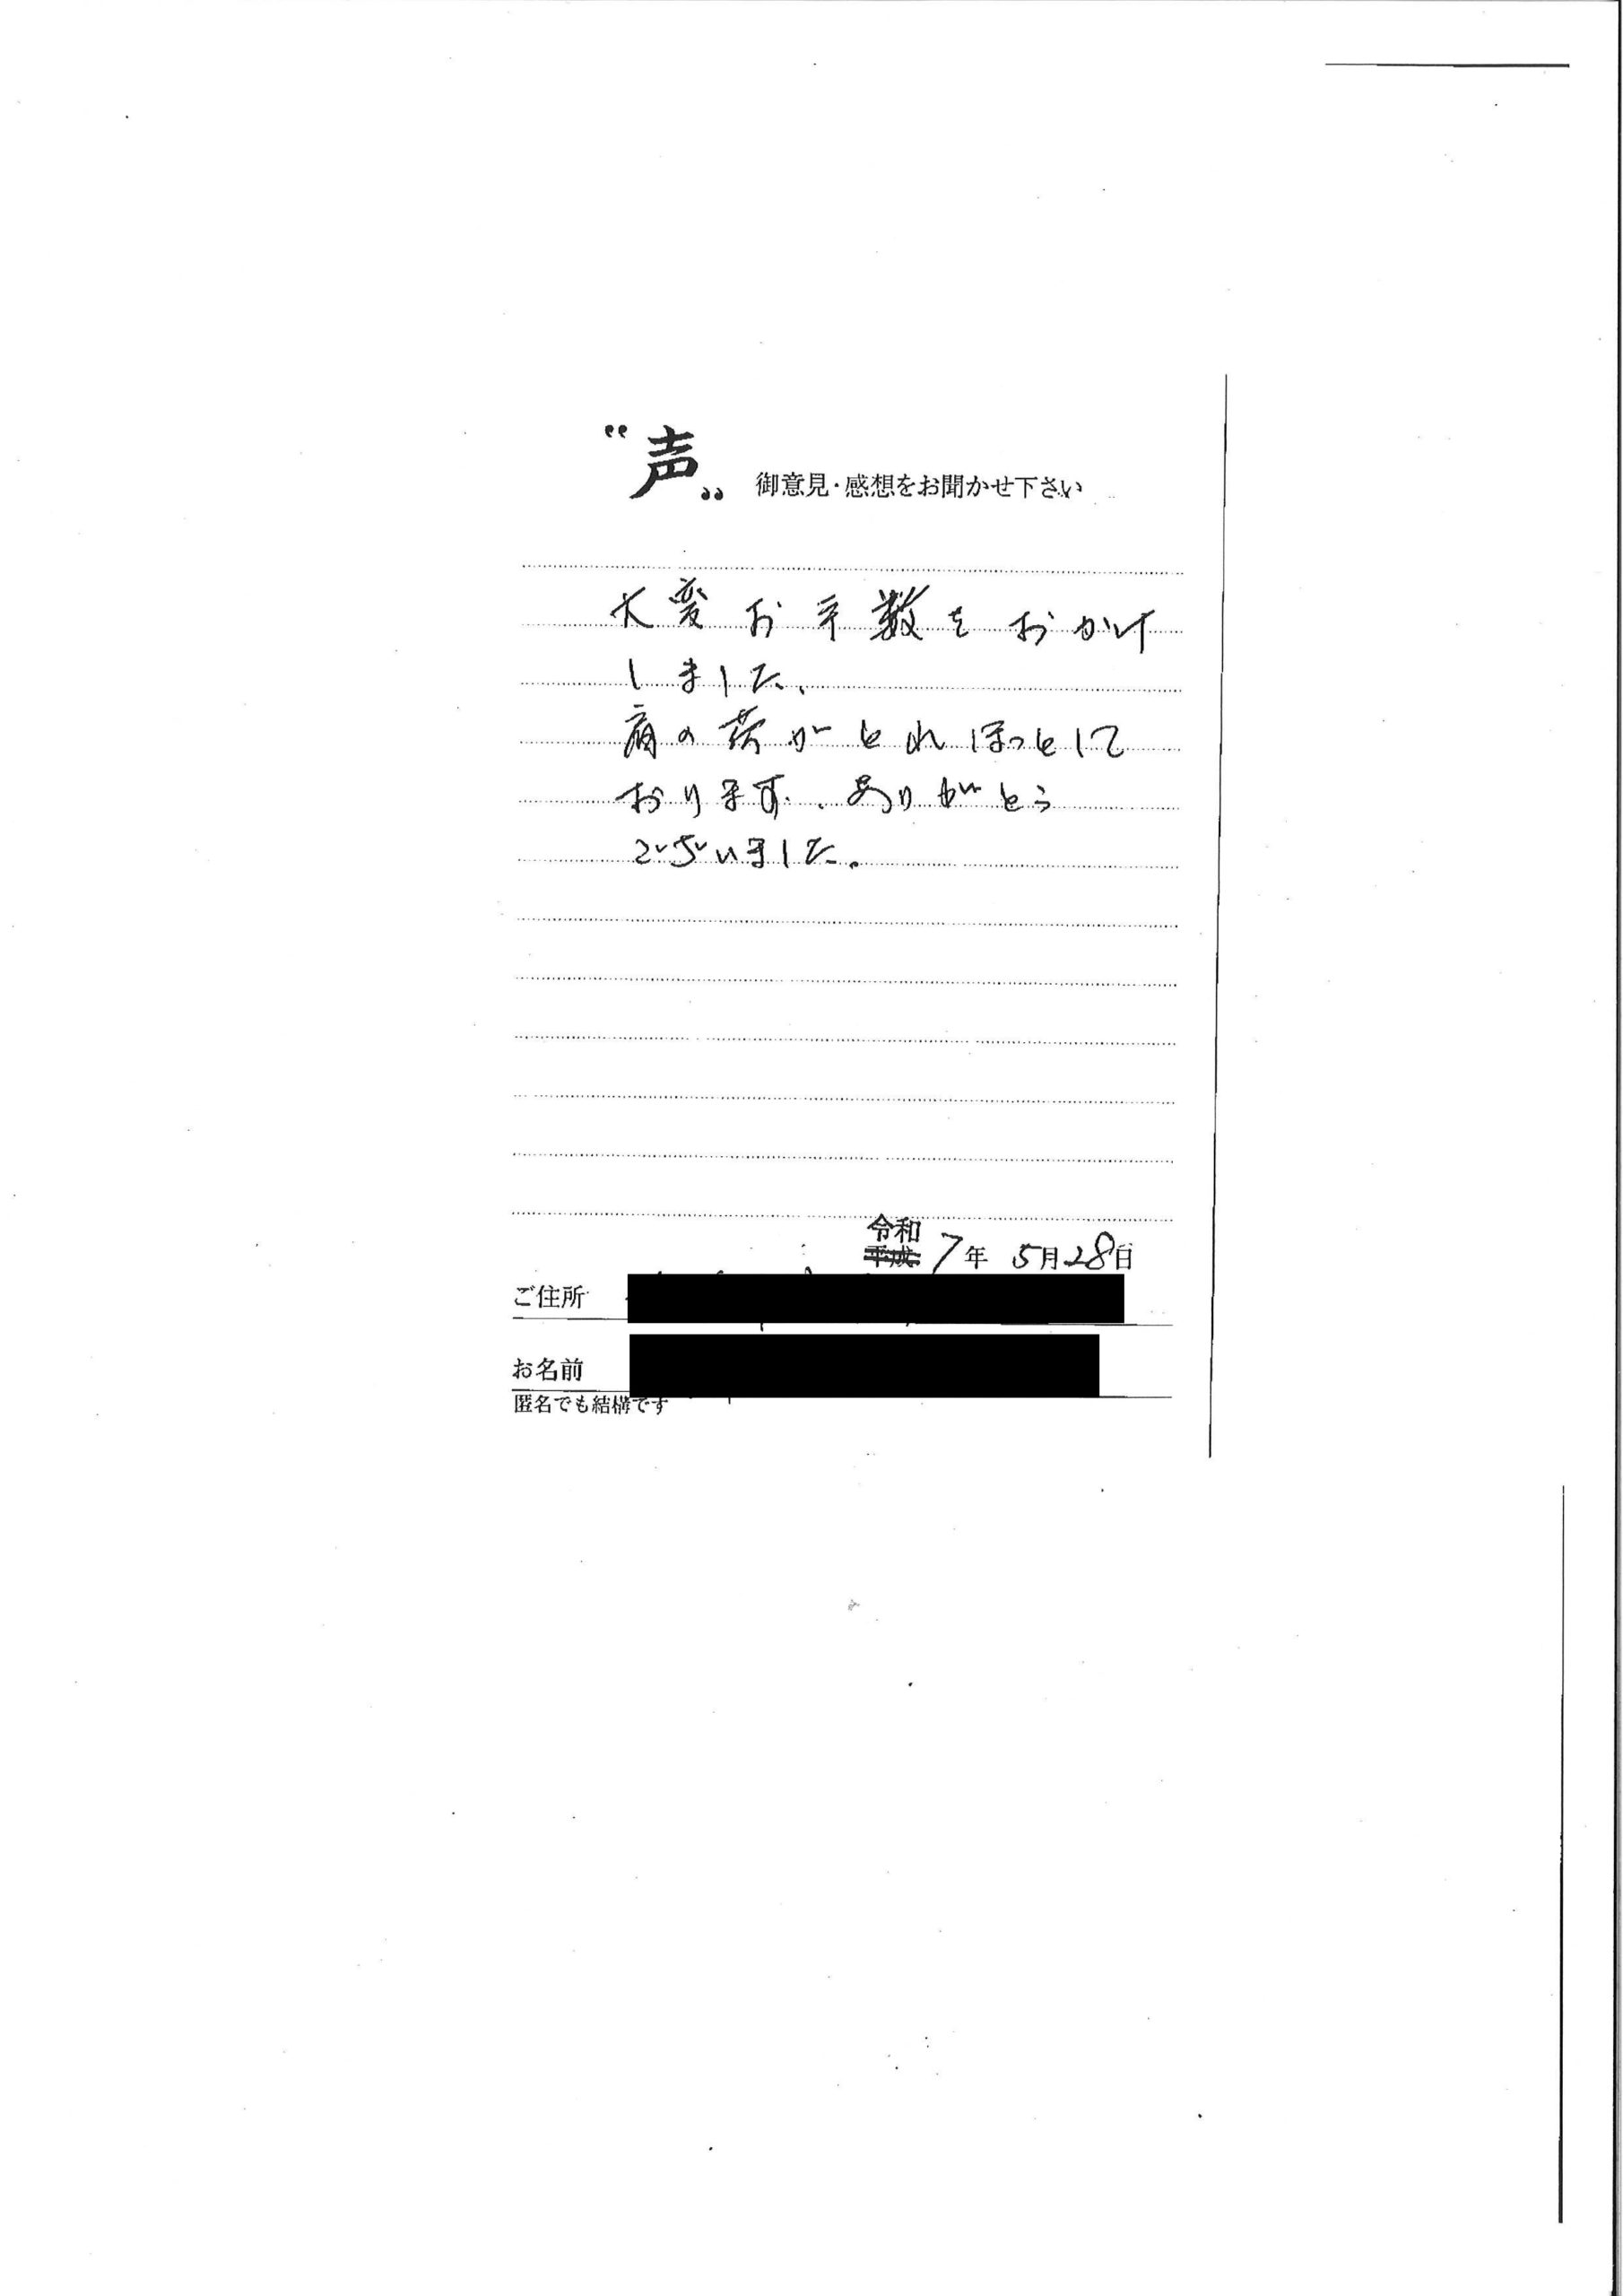 “声„ 御意見・感想をお聞かせ下さい
大変お手数をおかけ
しました、
肩の荷がとれほっとして
おります、ありがとう
ございました。
令和
平成 7年 5月28日
ご住所
お名前
匿名でも結構です